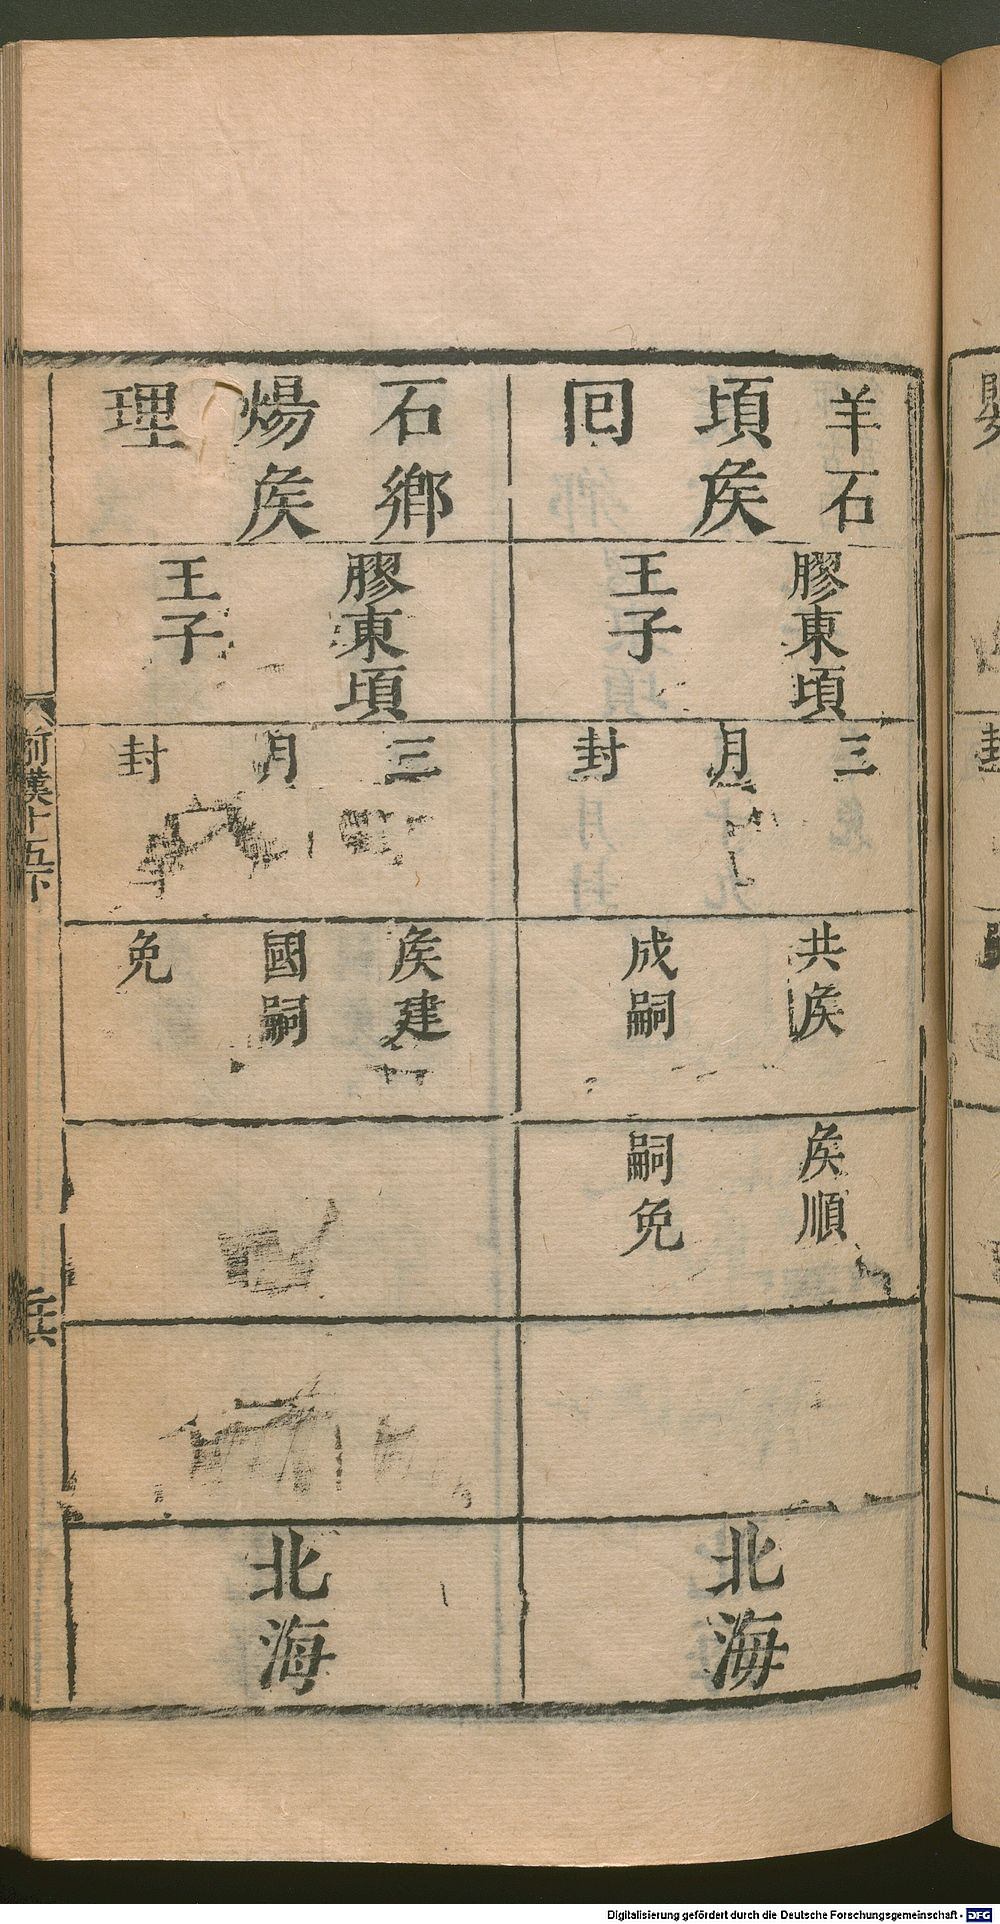 羊石
頃矦
囘
膠東頃
王子
三
月
封
共矦
成嗣
矦順
嗣免
北海
石鄉
煬矦
理
膠東頃
王子
三
月
封
矦建
國嗣
免
北海
前漢十五下
Digitalisierung gefördert durch die Deutsche Forschungsgemeinschaft - DFG